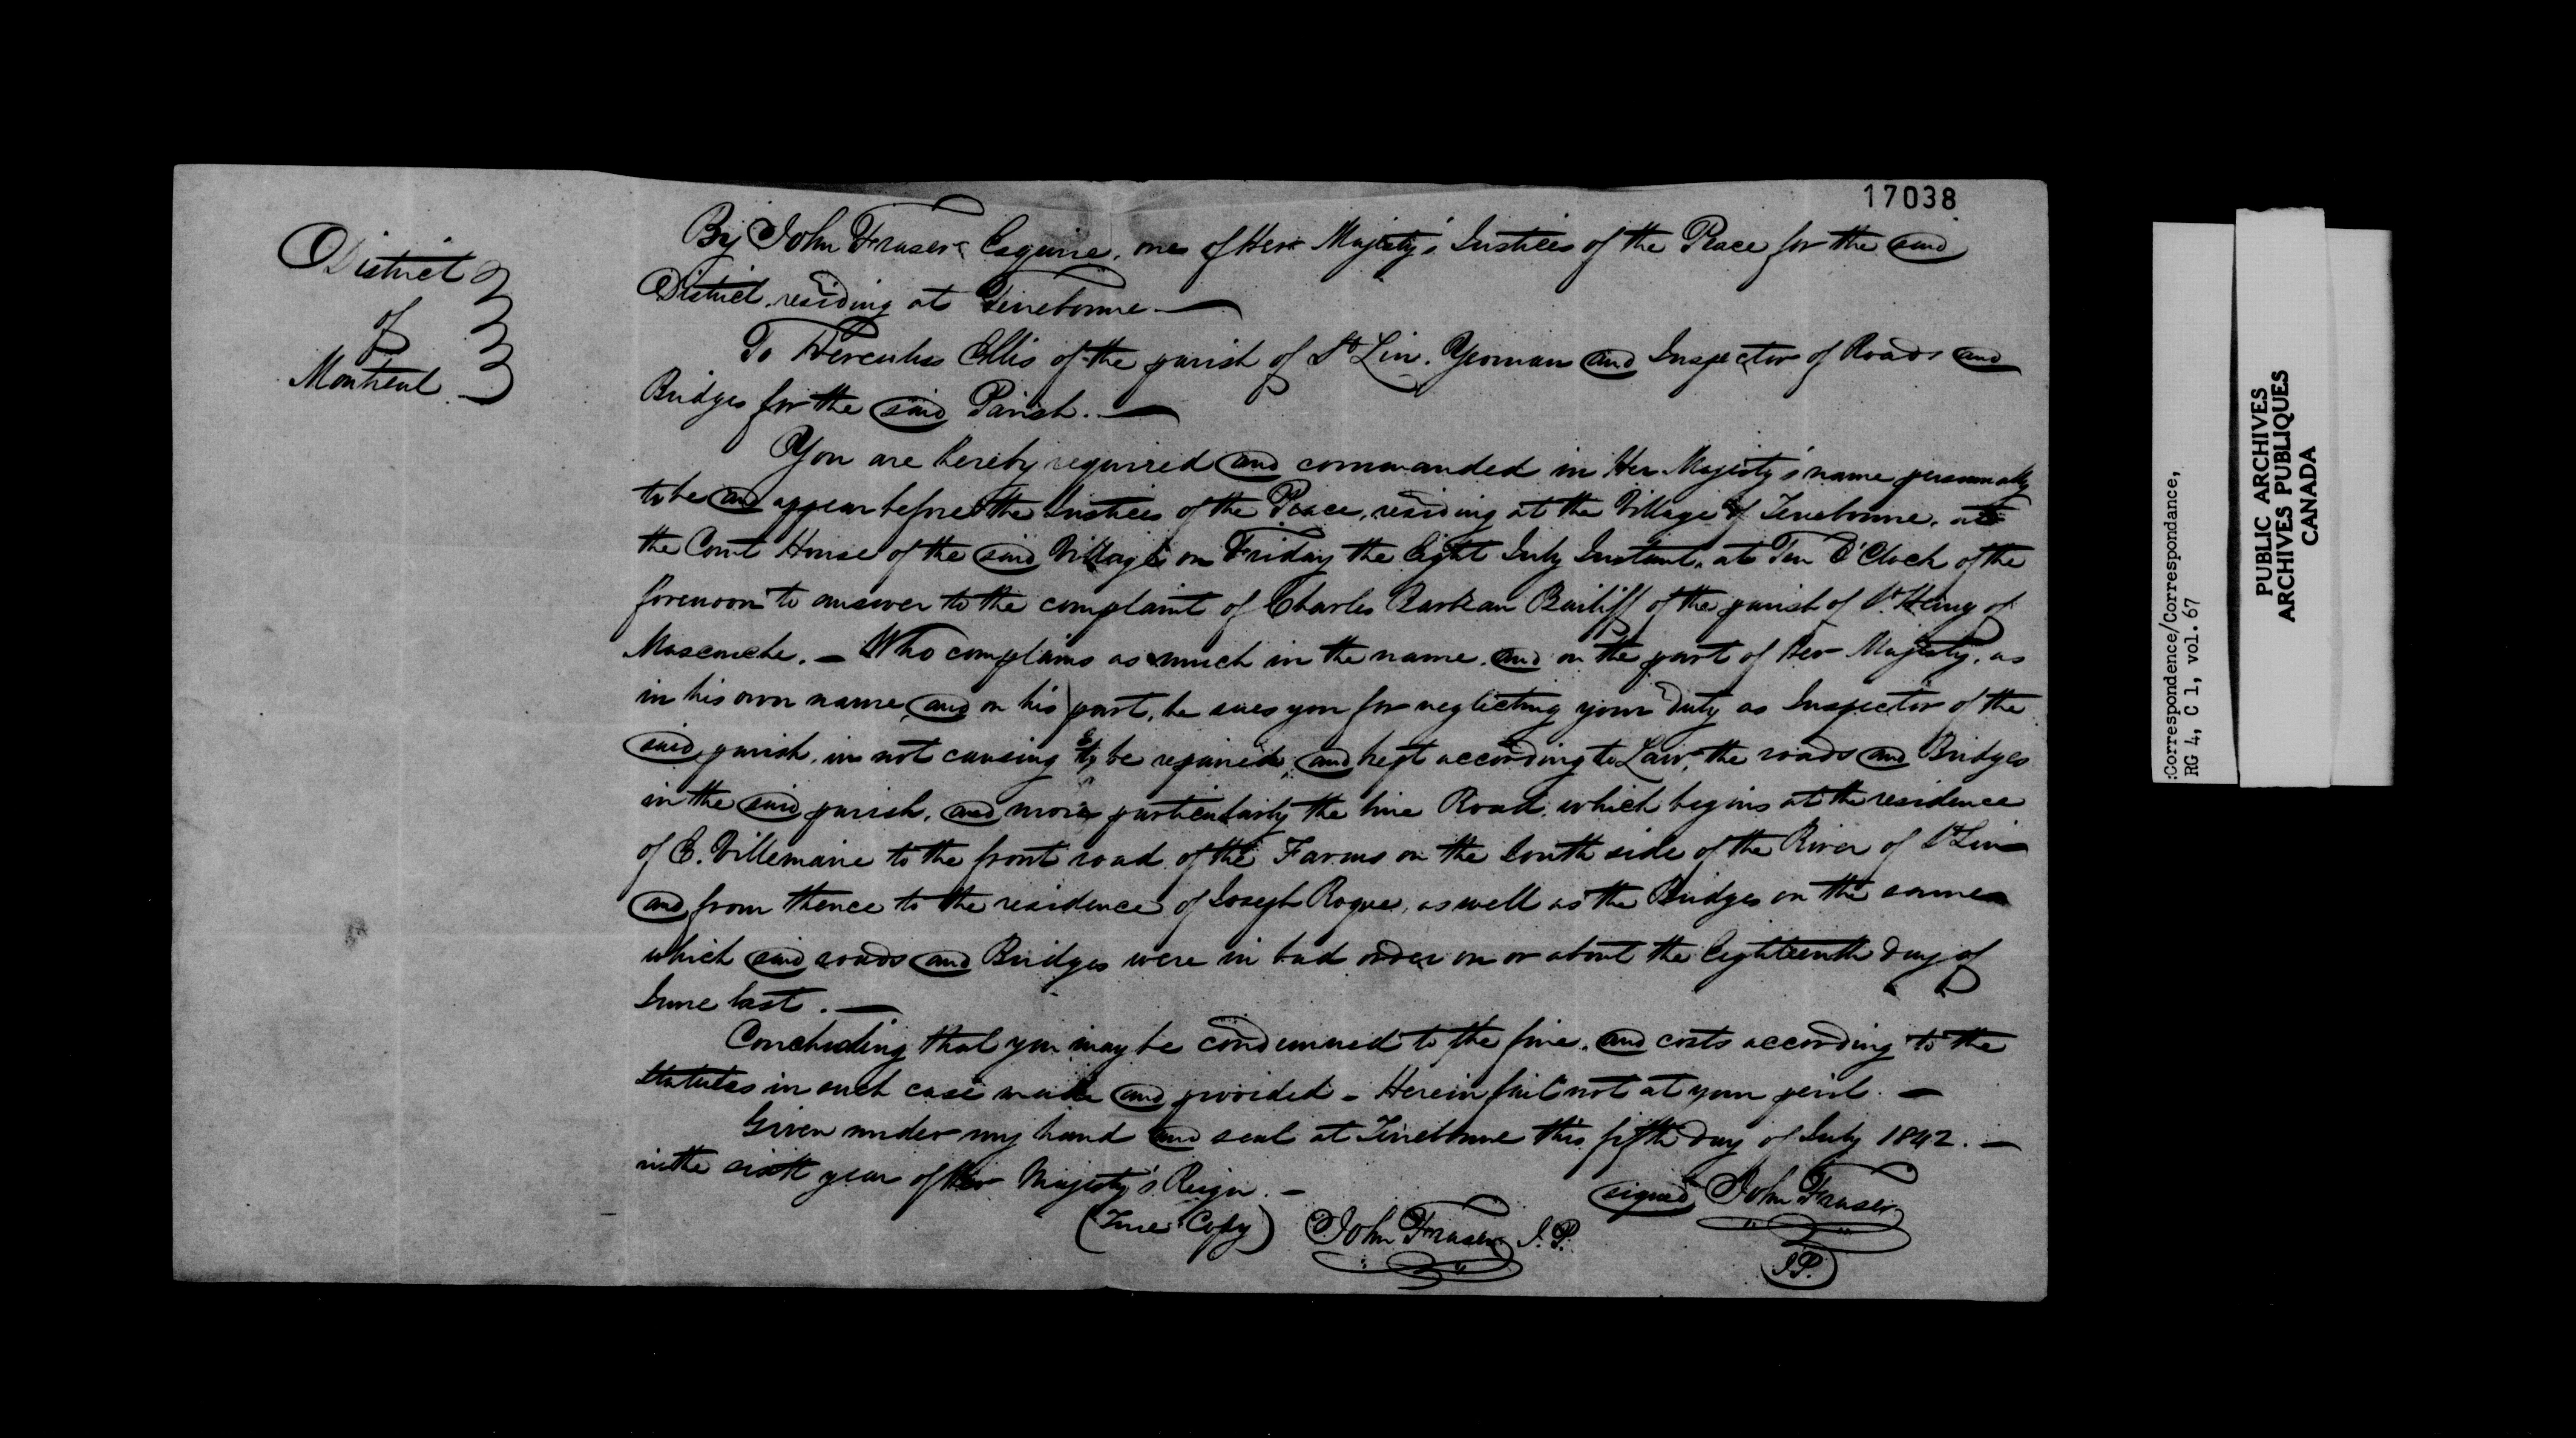 17038
District
of
Montreal
By John Fraser Esquire, one of Her Majesty's Justices of the Peace for the said
District residing at Terrebonne —
To Hercules Ellis of the parish of St Lin. Yeoman and Inspector of Roads and
Bridges for the said Parish. —
You are hereby required and commanded in Her Majesty's name personally
to be and appear before the Justices of the Peace, residing at the Village of Terrebonne, at
the Court House of the said Village on Friday the Eight July Instant, at Ten O'Clock of the
forenoon to answer to the complaint of Charles Barbeau Bailiff of the parish of St. Henry of
Mascouche. — Who complains as much in the name, and on the part of Her Majesty, as
in his own name, and on his part, he sues you for neglecting your duty as Inspector of the
said parish, in not causing to be repaired, and kept according to Law, the roads and Bridges
in the said parish, and more particularly the line Road, which begins at the residence
of E. Villemaire to the front road of the Farms on the South side of the River of St Lin
and from thence to the residence of Joseph Roque, as well as the Bridges on the same
which said roads and Bridges were in bad order on or about the Eighteenth day of
June last. —
Concluding that you may be condemned to the fine, and costs according to the
Statutes in such case made and provided — Herein fail not at your peril. —
Given under my hand and seal at Terrebonne this fifth day of July 1842. —
in the sixth year of Her Majesty's Reign. —
(signed) John Fraser
J.P.
(True Copy) John Fraser J.P.
:Correspondence/Correspondance,
RG 4, C 1, vol. 67
PUBLIC ARCHIVES
ARCHIVES PUBLIQUES
CANADA